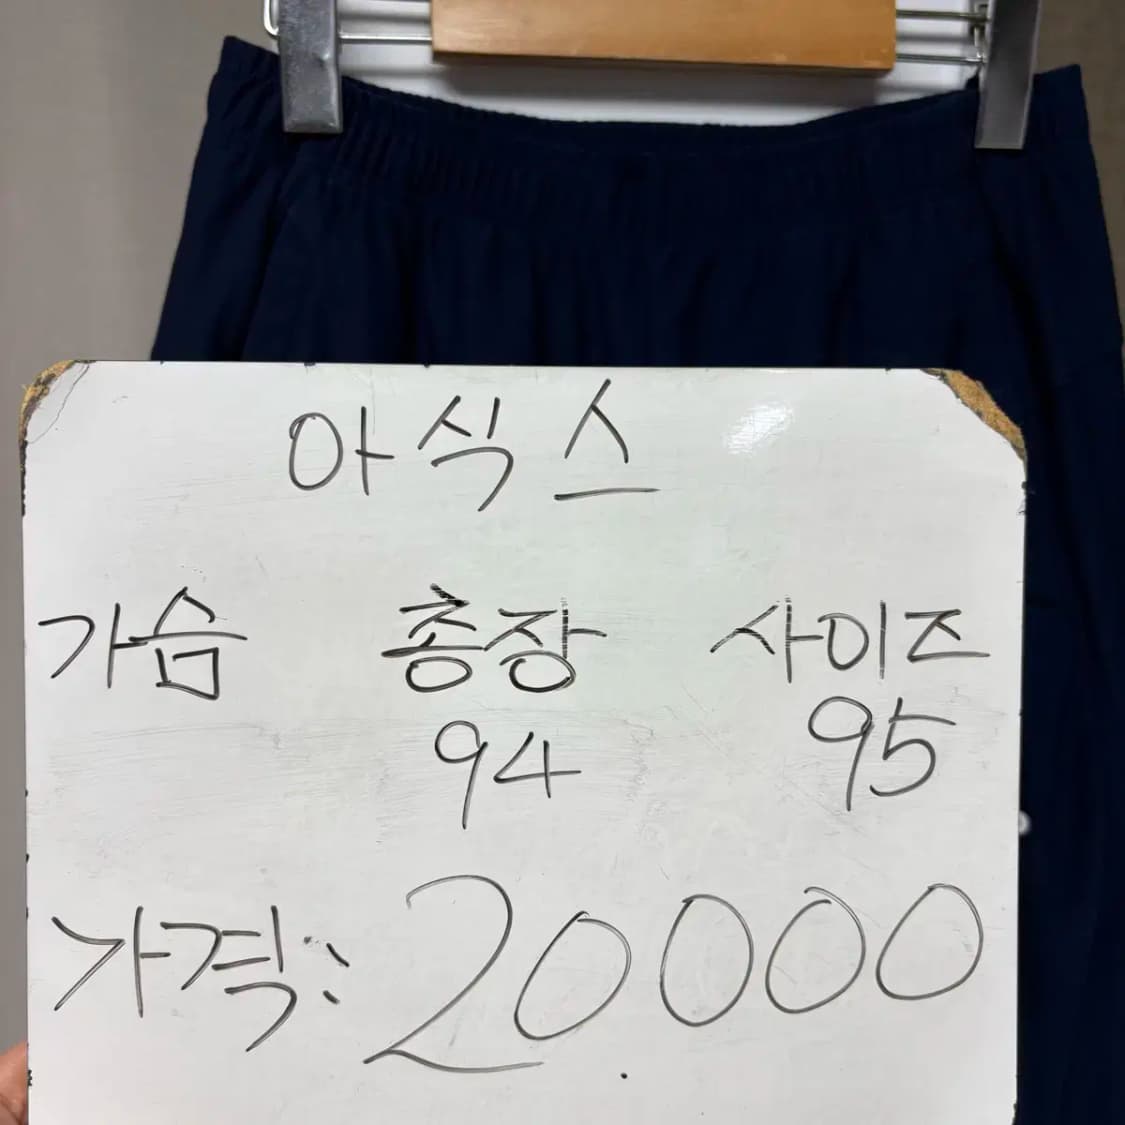 아식스
가슴 총장 사이즈
94 95
가격: 20.000